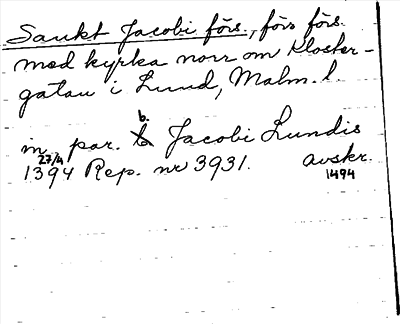 Sankt Jacobi förs., förs förs.
med kyrka norr om Kloster-
gatan i Lund, Malm. l.
in par. b. Jacobi Lundis
1394 27/4 Rep. nr 3931. avskr.
1494